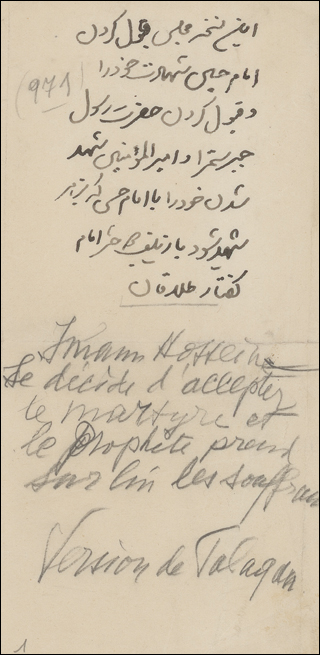 این نسخه مجلس قبول کردن
امام حسین شهادت خود را
(971)
و قبول کردن حضرت رسول
و امیرالمؤمنین شهید
شدن خود را با امام حسن که
شهید شود امام
گفتار طالقان
Imam Hossein
se décide d'accepter
le martyre et
le Prophète prend
sur lui les souffran
Version de Talagan
1